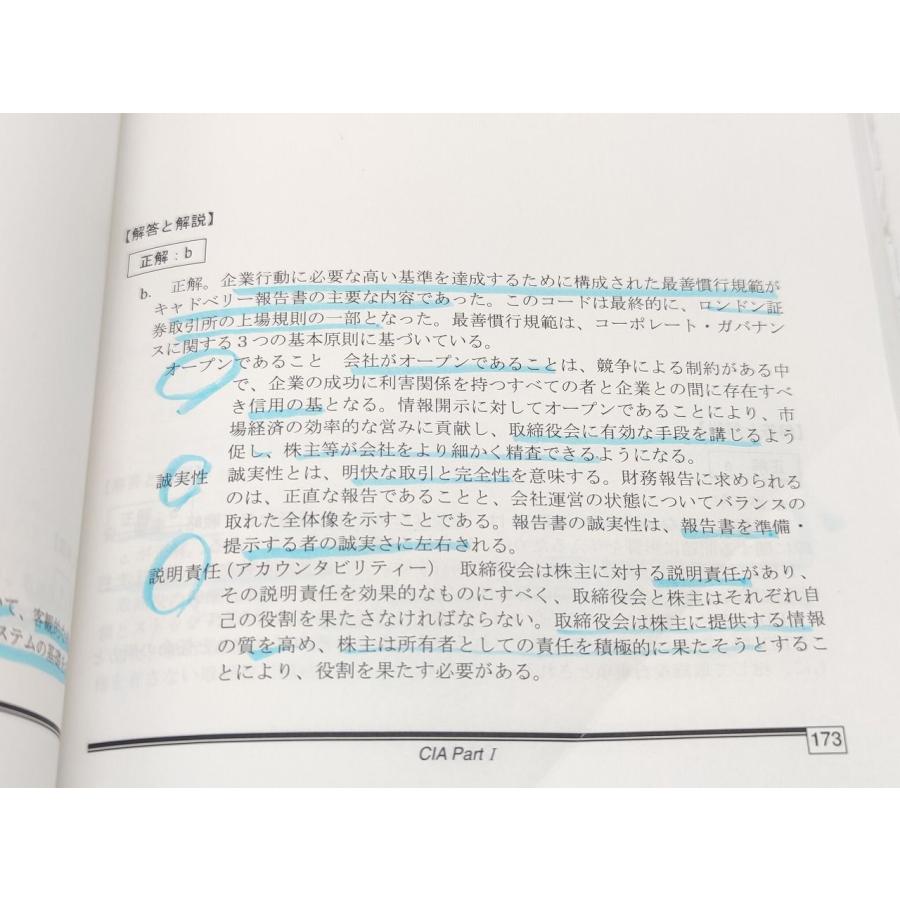 【解答と解説】
正解:b
b. 正解。企業行動に必要な高い基準を達成するために構成された最善慣行規範が
キャドベリー報告書の主要な内容であった。このコードは最終的に、ロンドン証
券取引所の上場規則の一部となった。最善慣行規範は、コーポレート・ガバナン
スに関する3つの基本原則に基づいている。
オープンであること 会社がオープンであることは、競争による制約がある中
で、企業の成功に利害関係を持つすべての者と企業との間に存在すべ
き信用の基となる。情報開示に対してオープンであることにより、市
場経済の効率的な営みに貢献し、取締役会に有効な手段を講じるよう
促し、株主等が会社をより細かく精査できるようになる。
誠実性 誠実性とは、明快な取引と完全性を意味する。財務報告に求められる
のは、正直な報告であることと、会社運営の状態についてバランスの
取れた全体像を示すことである。報告書の誠実性は、報告書を準備・
提示する者の誠実さに左右される。
説明責任(アカウンタビリティー) 取締役会は株主に対する説明責任があり、
その説明責任を効果的なものにすべく、取締役会と株主はそれぞれ自
己の役割を果たさなければならない。取締役会は株主に提供する情報
の質を高め、株主は所有者としての責任を積極的に果たそうとするこ
とにより、役割を果たす必要がある。
CIA Part I
173
て、客観的
ステムの基